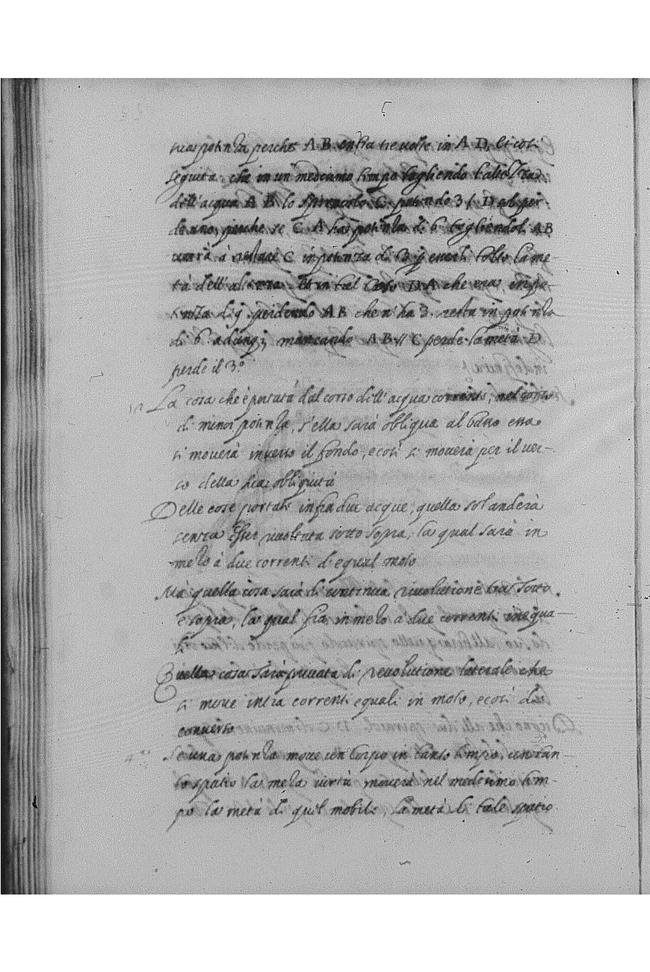 sua potenza perche A B entra tre uolte in A D, et cosi
seguita che in un medesimo tempo togliendo l'altezza
dell'acqua A B lo spiracolo C potendo 3 D
de uno, perche se C A ha potenza di 6 togliendoli AB
uerrà à restare C in potenza di 3 tolto la me
tà dell'altezza Et in tal caso D A che era in po
tenza di 9 perdendo AB che n'ha 3 resta in potenza
di 6 adunq; mancando A B il C perde la metà D
perde il 3º
La cosa che è portata dal corso dell'acqua corrente, nel
di minor potenza, s'ella sarà obliqua al basso essa
si mouerà inuerso il fondo, e così si mouerà per il uer-
so della sua obliquità
Delle cose portate infra due acque, quella sol anderà
senza esser riuoltata sotto sopra, la qual sarà in
mezo à due correnti d'equal moto
Mà quella cosa sarà di continua riuolutione tra sotto
e sopra, la qual fia in mezo à due correnti inequa-
li
Quella cosa sarà priuata di reuolutione laterale che
si moue intra correnti equali in moto, e così de
conuerso
Se una potenza moue un corpo in tanto tempo, un tan-
to spatio la meza uirtù mouerà nel medesimo tem-
po la metà di quel mobile, la metà di tale spatio